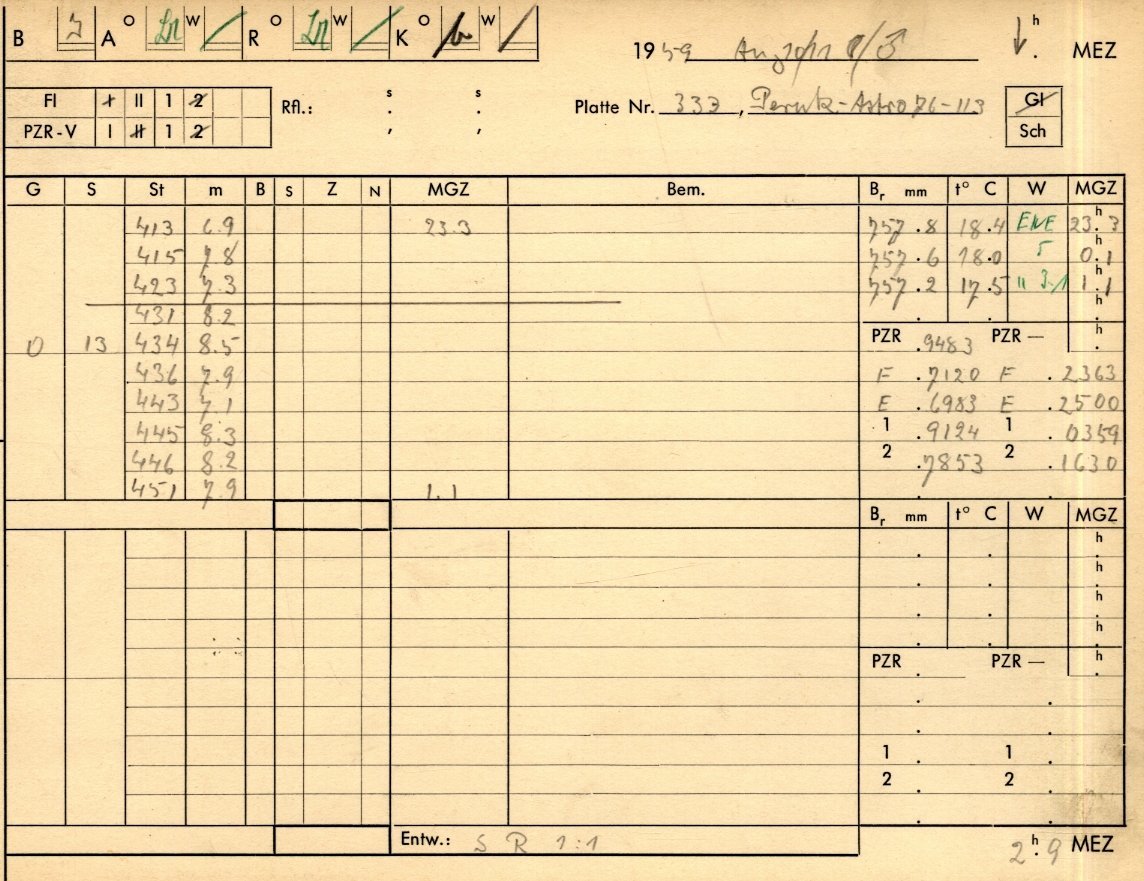 B A O W R O W K O W
1959 Aug 10/11 h MEZ
FI I II 1 2 Rfl.: s s Platte Nr. 333, Perutz-Astro 76-113 Gl
PZR-V I II 1 2 , , Sch
G S St m B S Z N MGZ Bem. Br mm t° C W MGZ
413 6.9 23.3 757.8 18.4 ENE 23.3 h
415 7.8 757.6 18.0 5 0.1 h
423 7.3 757.2 17.5 " 1.1 h
431 8.2 h
0 13 434 8.5 PZR .9483 PZR — h
436 7.9 F .7120 F .2363
443 7.1 E .6983 E .2500
445 8.3 1 .9124 1 .0359
446 8.2 2 .7853 2 .1630
451 7.9 1.1
Br mm t° C W MGZ
h
h
h
h
PZR PZR — h
1 1
2 2
Entw.: S R 1:1 2h.9 MEZ